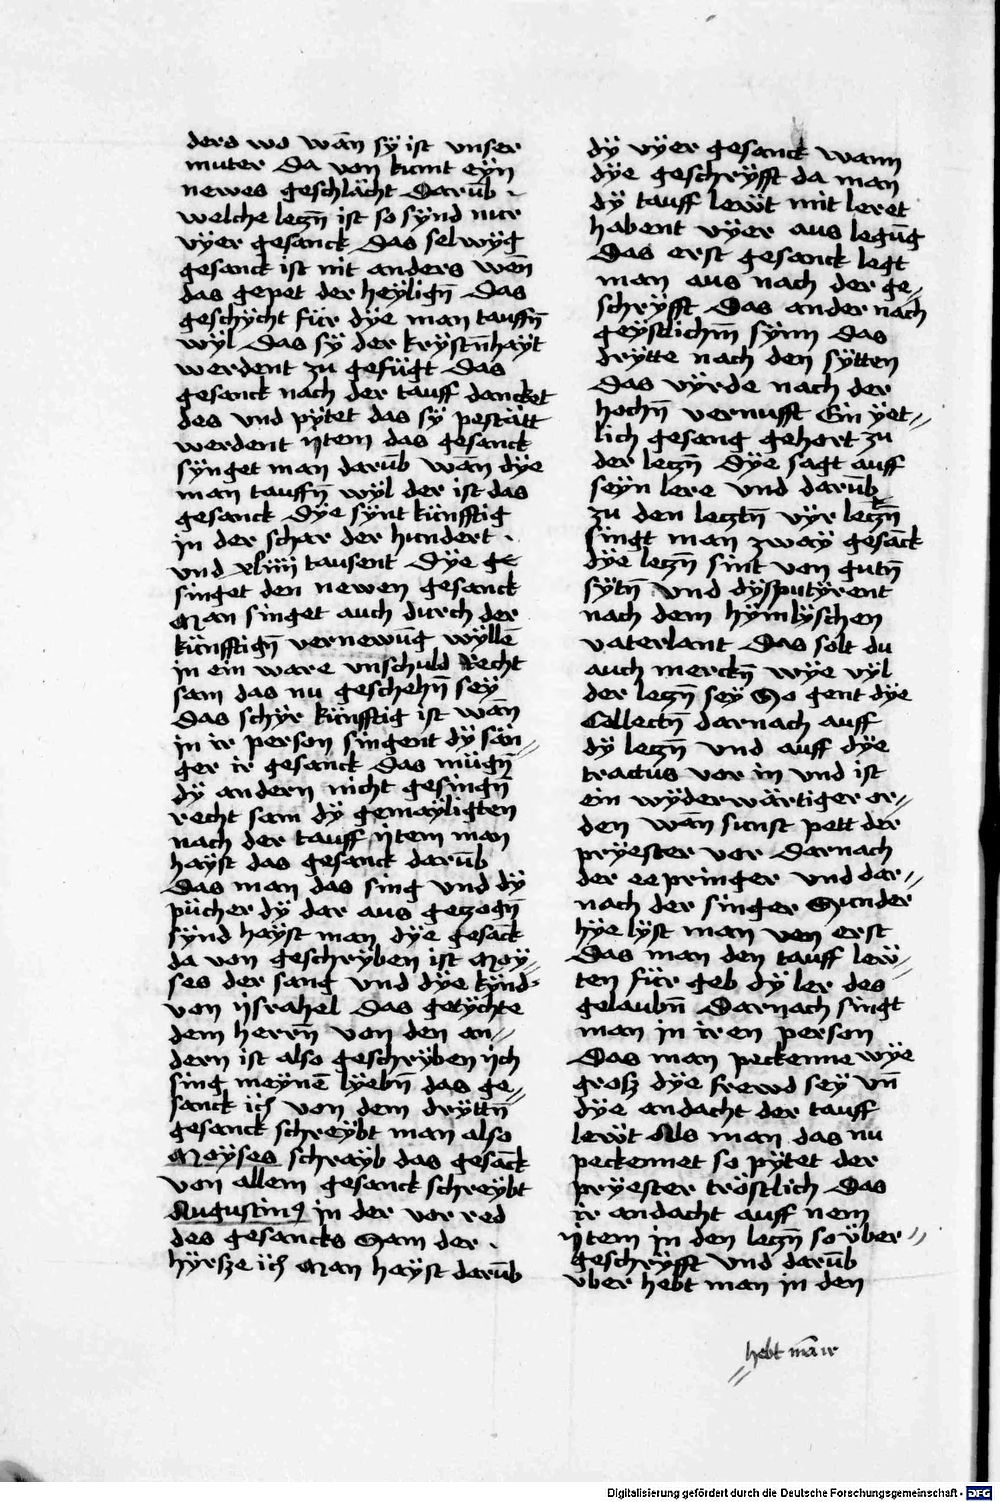 ders wo wān sÿ ist vnser
muter Da von kumt eÿn
newes geschlächt Darūb
welche leczn̄ ist so sÿnd nur
vÿer gesanck Das selwÿg
gesanck ist nit anders wen̄
das gepet der heÿlign̄ Das
geschÿcht für dÿe man tauffn̄
wÿl Das sÿ der krÿstn̄haÿt
werdent zu gefügt Das
gesanck nach der tauff dancket
des vnd pÿtet das sÿ pestätt
werdent ÿtem das gesanck
sÿnget man darūb wān dÿe
man tauffn̄ wÿl der ist das
gesanck Dÿe sÿnt künfftig
in der schar der hundert
vnd xliiij tausent Dÿe ge
singet den newen gesanck
Man singet auch durch der
künfftign̄ vernewūg wÿllē
in ein ware vnschuld Recht
sam das nu geschehn̄ seÿ
Das schÿr künfftig ist wān
in ir person singent dÿ sän⸗
ger ir gesanck Das mügn̄
dÿ andern nicht gesingn̄
recht sam dÿ gemaÿligten
nach der tauff ÿtem man
haÿst das gesanck darūb
Das man das sing vnd dÿ
pücher dÿ dar aus geczogn̄
sÿnd haÿst man dÿe gesāck
da von geschrÿben ist Moÿ⸗
ses der sang vnd dÿe kÿnd⸗
von ÿsrahel Das getÿchte
dem herrn̄ von den an⸗
dern ist also geschrÿben ÿch
sing meÿnē lÿebn̄ das ge⸗
sanck ich von dem drÿttn̄
gesanck schreÿbt man also
Moÿses schraÿb das gesāck
von allem gesanck schreÿbt
Augustinꝰ in der vor red
des gesancks Sam der
hÿrsze ich Man haÿst darūb
dÿ vÿer gesanck wann
dÿe geschrÿfft da man
dÿ tauff lerẅt mit leret
habent vÿer aus legūg
Das erst gesanck legt
man aus nach der ge⸗
schrÿfft Das ander nach
geÿstlichm̄ sÿnn das
drÿtte nach den sÿtten
Das vÿrde nach der
hochn̄ vernufft Ein ÿet⸗
lich gesang gehort zu
der leczn̄ Dÿe sagt auff
seÿn lere vnd darūb
zu den lecztn̄ vÿr leczn̄
singt man zwaÿ gesāck
dÿe leczn̄ sint von gutn̄
sÿtn̄ vnd dÿsputÿrent
nach dem hÿmlÿschen
vaterlant Das solt du
auch merckn̄ wÿe vÿl
der leczn̄ seÿ So gent dÿe
Collectn̄ darnach auff
dÿ leczn̄ vnd auff dÿe
tractus vor in vnd ist
ein wÿderwärtiger or⸗
den wān sunst pett der
prÿester vor Darnach
der ee pringer vnd dar⸗
nach der singer Sunder
hÿe lÿst man von erst
Das man den tauff lerẅ⸗
ten für geb dÿ ler des
gelaubn̄ Darnach singt
man in iren person
Das man peckenne wÿe
grosz dÿe frewd seÿ vn̄
dÿe andacht der tauff
lerẅt Als man das nu
peckennet so pÿtet der
prÿester tröstlich Das
ir andacht auff nem
ÿtem in den leczn̄ so über⸗
geschrÿfft vnd darūb
vber hebt man in den
hebt mā ir
Digitalisierung gefördert durch die Deutsche Forschungsgemeinschaft - DFG